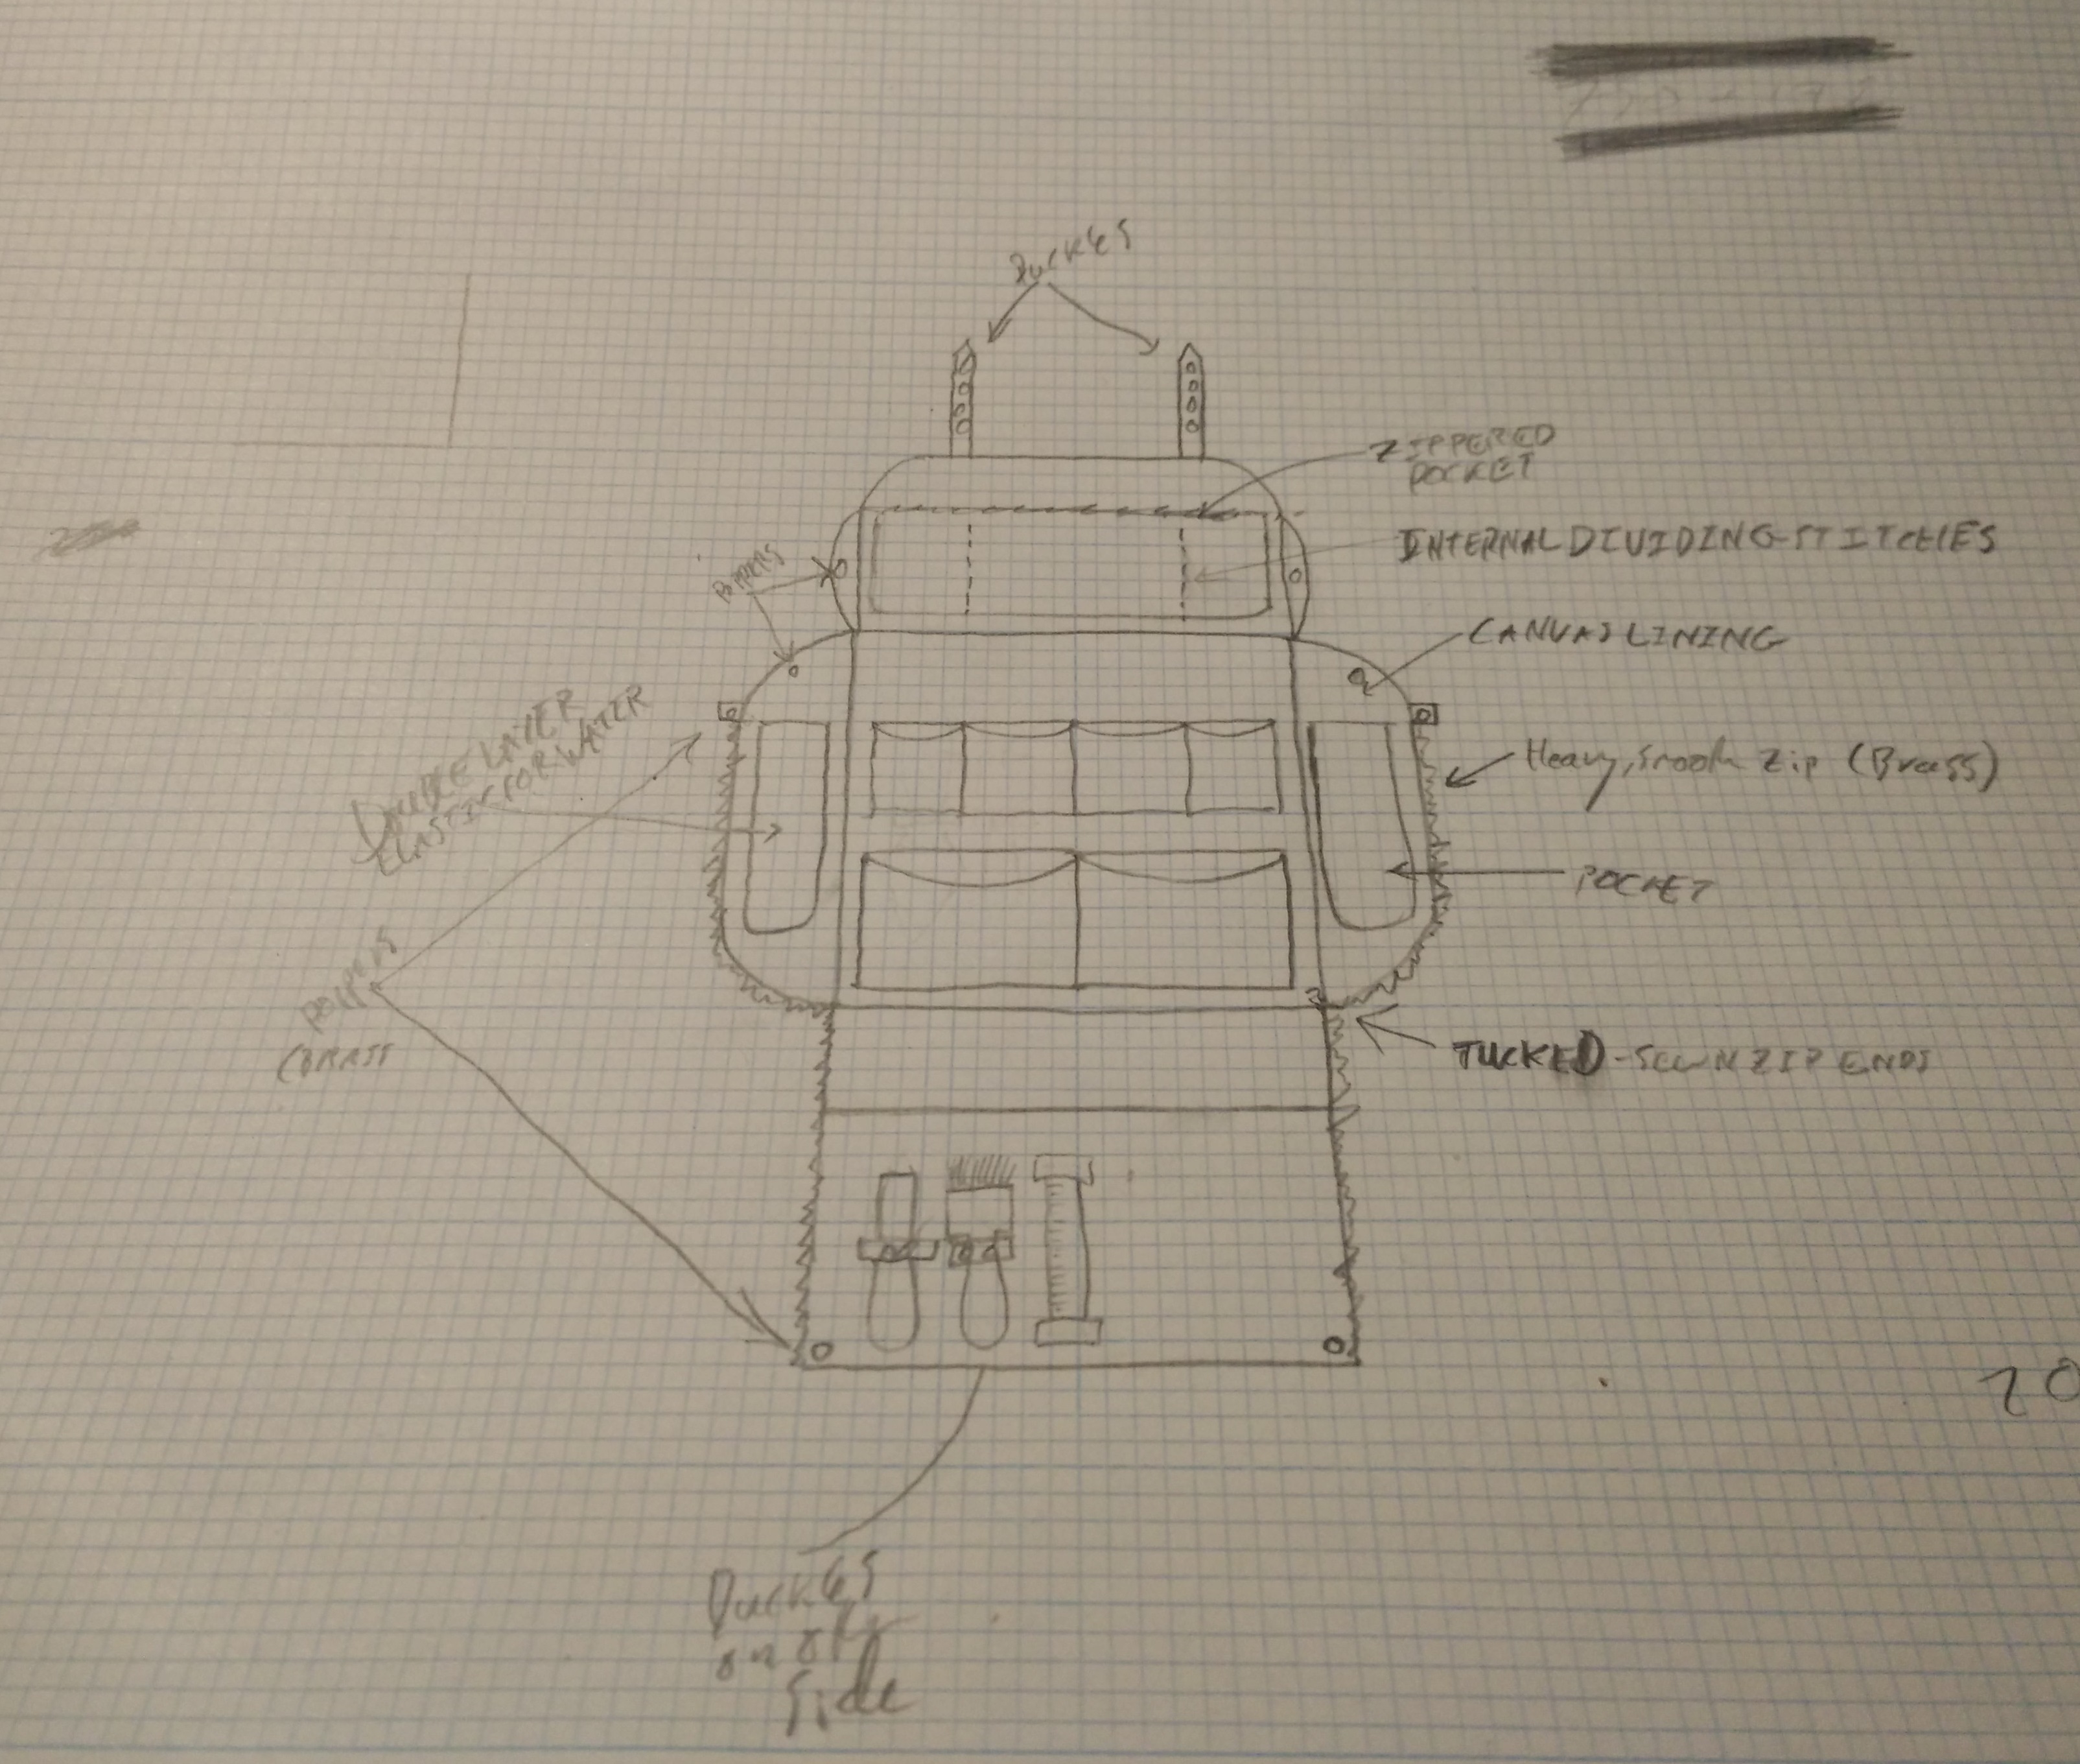 BUCKLES
ZIPPERED
POCKET
INTERNAL DIVIDING STITCHES
POPPERS
CANVAS LINING
DOUBLE LAYER
ELASTIC FOR WATER
Heavy, smooth Zip (Brass)
POCKET
POPPERS
(BRASS
TUCKED-SEWN ZIP ENDS
20
Buckles
on other
side